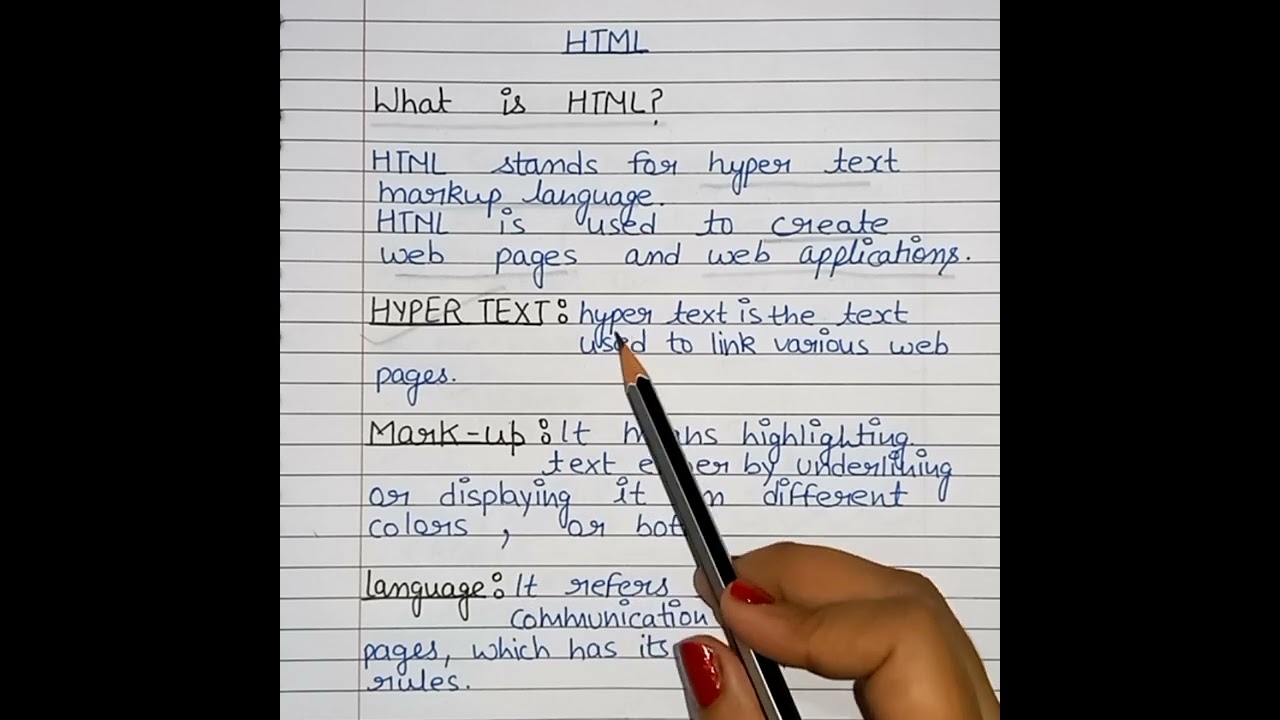 HTML
What is HTML?
HTML stands for hyper text
markup language.
HTML is used to create
web pages and web applications.
HYPER TEXT: hyper text is the text
used to link various web
pages.
Mark-up: It highlighting
text by underlining
or displaying it different
colors, or
language: It refers
communication
pages, which has its
rules.